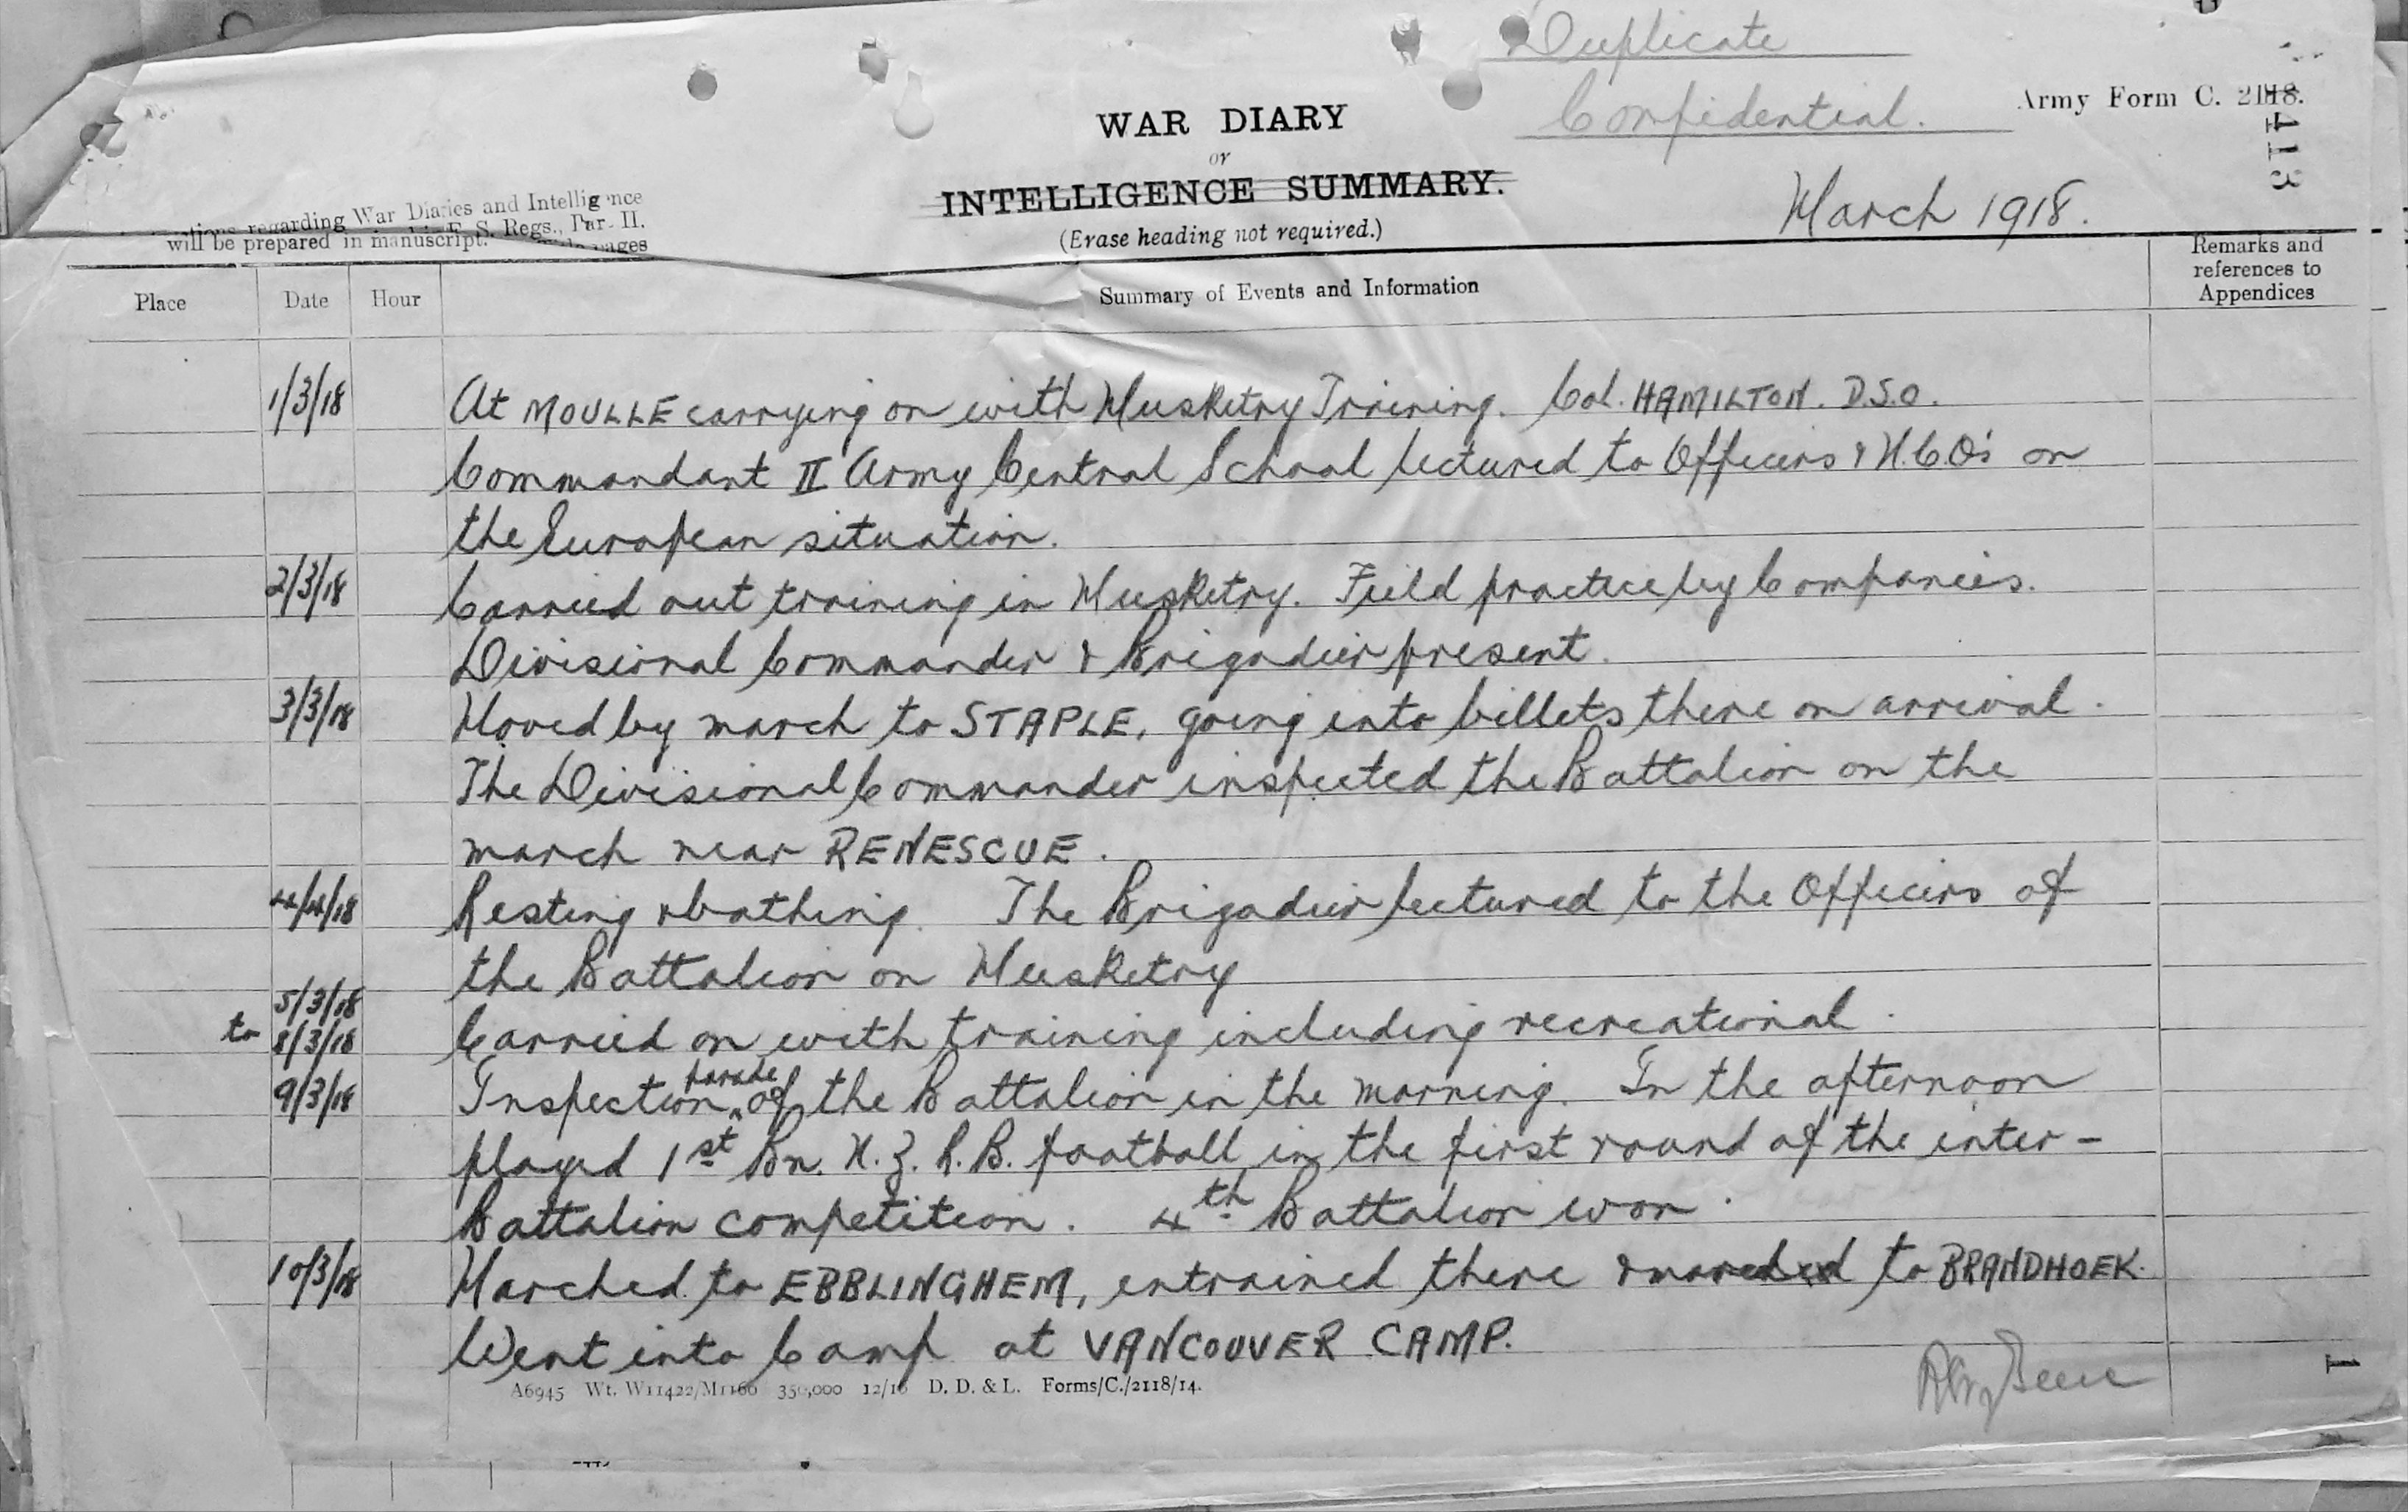 Duplicate
Confidential.
Army Form C. 2118.
WAR DIARY
or
INTELLIGENCE SUMMARY.
(Erase heading not required.)
March 1918.
regarding War Diaries and Intelligence
E. S. Regs., Part II.
pages
will be prepared in manuscript.
Place Date Hour Summary of Events and Information Remarks and references to Appendices
1/3/18 At MOULLE carrying on with Musketry Training. Col. HAMILTON. D.S.O.
Commandant II Army Central School lectured to Officers & N.C.O's on
the European situation.
2/3/18 Carried out training in Musketry. Field practice by Companies.
Divisional Commander & Brigadier present.
3/3/18 Moved by march to STAPLE, going into billets there on arrival.
The Divisional Commander inspected the Battalion on the
march near RENESCUE.
4/4/18 Resting & bathing. The Brigadier lectured to the Officers of
the Battalion on Musketry
5/3/18
to 8/3/18 Carried on with training including recreational.
9/3/18 Inspection parade of the Battalion in the morning. In the afternoon
played 1st Bn. N.Z.R.B. football in the first round of the inter-
Battalion competition. 4th Battalion won.
10/3/18 Marched to EBBLINGHEM, entrained there & marched to BRANDHOEK.
Went into Camp at VANCOUVER CAMP.
A6945 Wt. W11422/M1160 350,000 12/16 D. D. & L. Forms/C./2118/14.
1